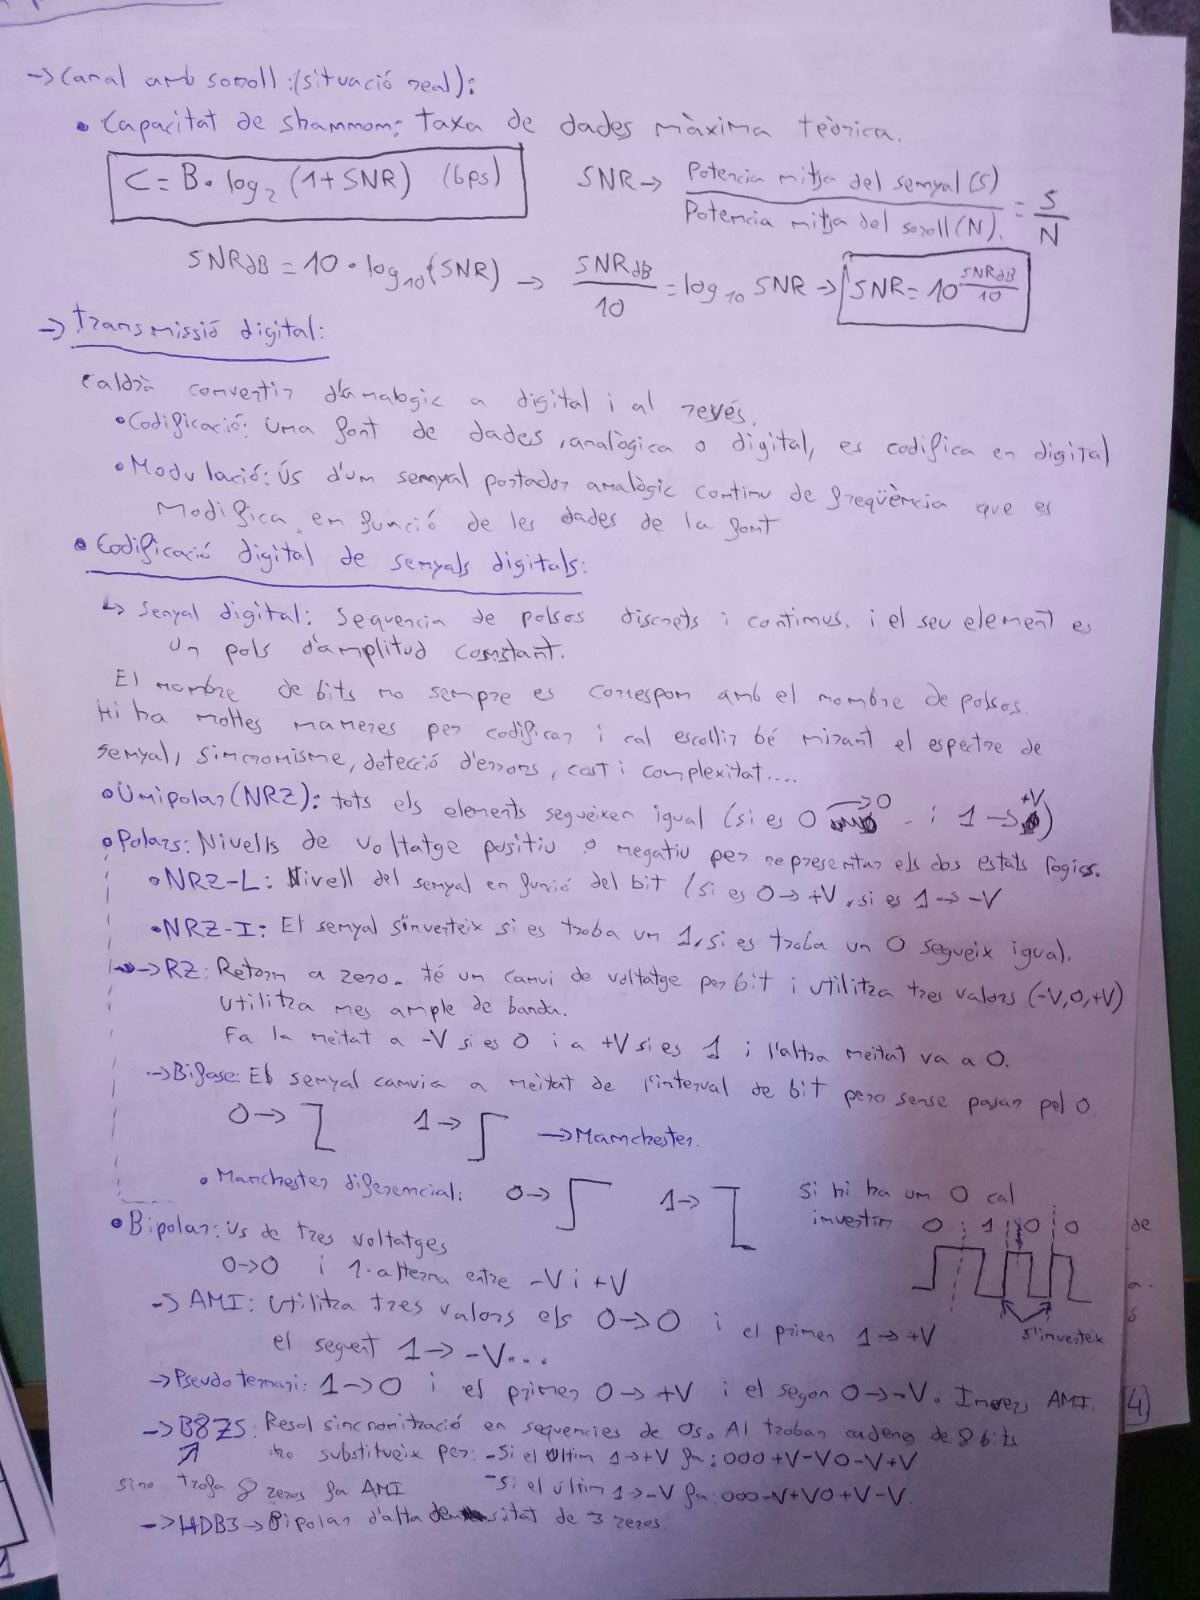 → Canal amb soroll: (situació real):
• Capacitat de Shannon: taxa de dades màxima teòrica.
C = B · log₂ (1+SNR) (bps)
SNR → Potencia mitja del senyal (S) / Potencia mitja del soroll (N). = S/N
SNRdB = 10 · log₁₀ (SNR) → SNRdB/10 = log₁₀ SNR → SNR = 10^(SNRdB/10)
→ Transmissió digital:
Caldrà convertir d'analogic a digital i al revés.
• Codificació: una font de dades, analògica o digital, es codifica en digital
• Modulació: Ús d'un senyal portador analògic continu de freqüència que es
modifica en funció de les dades de la font
• Codificació digital de senyals digitals:
↳ Senyal digital: Sequencia de polsos discrets i continus. i el seu element es
un pols d'amplitud constant.
El nombre de bits no sempre es correspon amb el nombre de polsos.
Hi ha moltes maneres per codificar i cal escollir bé mirant el espectre de
senyal, sincronisme, detecció d'errors, cost i complexitat....
• Unipolar (NRZ): tots els elements segueixen igual (si es 0 → 0 - i 1 → +V)
• Polars: Nivells de voltatge positiu o negatiu per representar els dos estats logics.
• NRZ-L: Nivell del senyal en funió del bit (si es 0 → +V, si es 1 → -V
• NRZ-I: El senyal s'inverteix si es troba un 1, si es troba un 0 segueix igual).
→ RZ: Retorn a zero. té un canvi de voltatge per bit i utilitza tres valors (-V, 0, +V)
utilitza mes ample de banda.
Fa la meitat a -V si es 0 i a +V si es 1 i l'altra meitat va a 0.
→ Bifase: El senyal canvia a meitat de l'interval de bit pero sense pasar pel 0.
0 → 1 → → Manchester.
• Manchester diferencial: 0 → 1 → Si hi ha un 0 cal
invertir 0 1 0 0
• Bipolar: us de tres voltatges
0→0 i 1. alterna entre -V i +V
→ AMI: utilitza tres valors els 0→0 i el primer 1→ +V
s'inverteix
el seguent 1→ -V...
→ Pseudoternari: 1→0 i el primer 0→ +V i el segon 0→ -V. Invers AMI.
(4)
→ B8ZS: Resol sincronització en sequencies de 0s. Al trobar cadena de 8 bits
ho substitueix per: - Si el últim 1→+V fa: 000+V-V0-V+V
sino troba 8 zeros fa AMI - Si el últim 1→-V fa: 000-V+V0+V-V.
→ HDB3 → Bipolar d'alta densitat de 3 zeros.